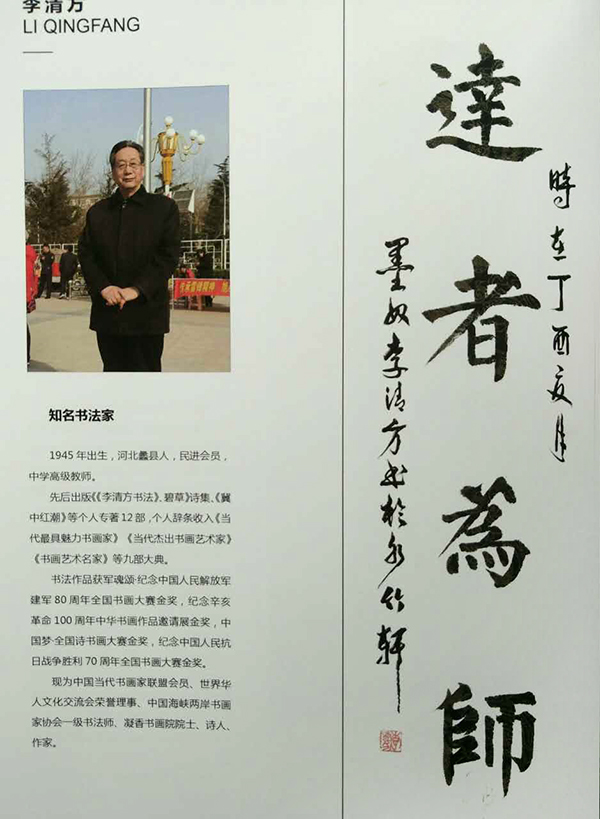 李清方
LI QINGFANG
知名书法家
1945 年出生，河北蠡县人，民进会员，
中学高级教师。
先后出版《《李清方书法》、碧草》诗集、《冀
中红潮》等个人专著 12 部，个人辞条收入《当
代最具魅力书画家》《当代杰出书画艺术家》
《书画艺术名家》等九部大典。
书法作品获军魂颂·纪念中国人民解放军
建军 80 周年全国书画大赛金奖，纪念辛亥
革命 100 周年中华书画作品邀请展金奖，中
国梦·全国诗书画大赛金奖，纪念中国人民抗
日战争胜利 70 周年全国书画大赛金奖。
现为中国当代书画家联盟会员、世界华
人文化交流会荣誉理事、中国海峡两岸书画
家协会一级书法师、凝香书画院院士、诗人、
作家。
時在丁酉夜月
達者為師
墨奴李清方书於水竹轩